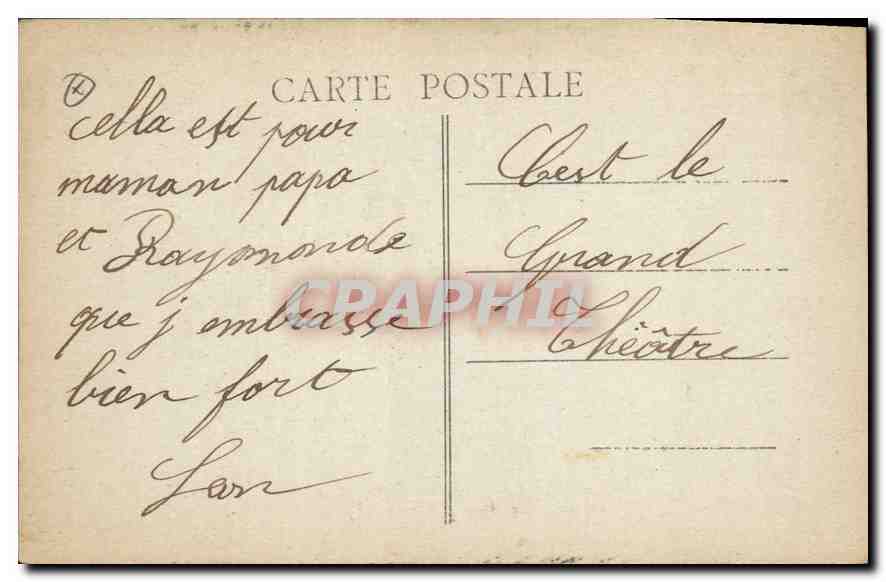 CARTE POSTALE
cella est pour
maman papa
et Raymonde
que j embrasse
bien fort
C'est le
Grand
Théâtre
CPAPHIL